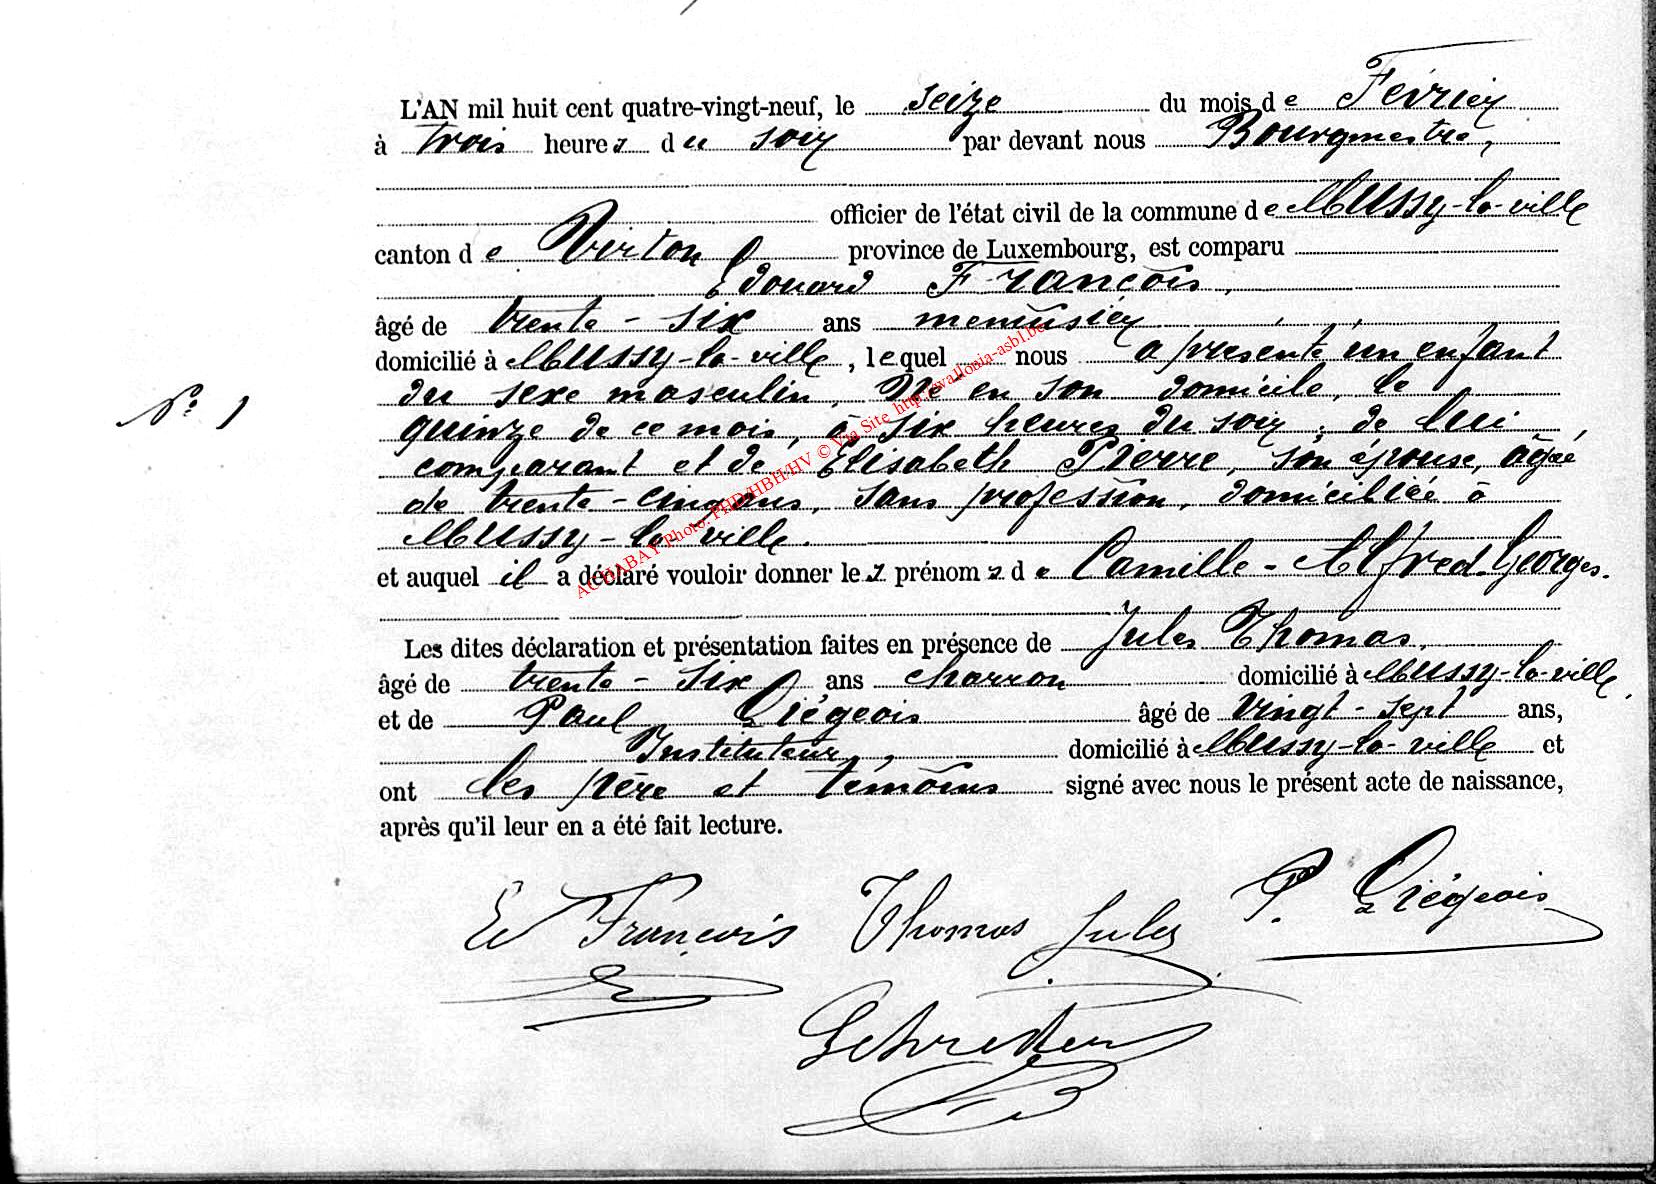 L'AN mil huit cent quatre-vingt-neuf, le seize du mois de Février
à trois heures du soir par devant nous Bourgmestre,
officier de l'état civil de la commune de Mussy-la-ville
canton de Virton province de Luxembourg, est comparu
Edouard François,
âgé de trente-six ans menuisier
domicilié à Mussy-la-ville, lequel nous a présenté un enfant
du sexe masculin, Né en son domicile, le
N° 1
quinze de ce mois, à six heures du soir, de lui
comparant et de Elisabeth Pierre, son épouse, âgée
de trente-cinq ans, sans profession, domiciliée à
Mussy-la-ville.
et auquel il a déclaré vouloir donner les prénoms de Camille-Alfred-Georges.
Les dites déclaration et présentation faites en présence de Jules Thomas,
âgé de trente-six ans charron domicilié à Mussy-la-ville,
et de Paul Liégeois âgé de vingt-sept ans,
Instituteur, domicilié à Mussy-la-ville et
ont les père et témoins signé avec nous le présent acte de naissance,
après qu'il leur en a été fait lecture.
Ed François Thomas Jules P. Liégeois
ACHABAY Photo: PHD/HBH/HV © Via Site http://wallonia-asbl.be